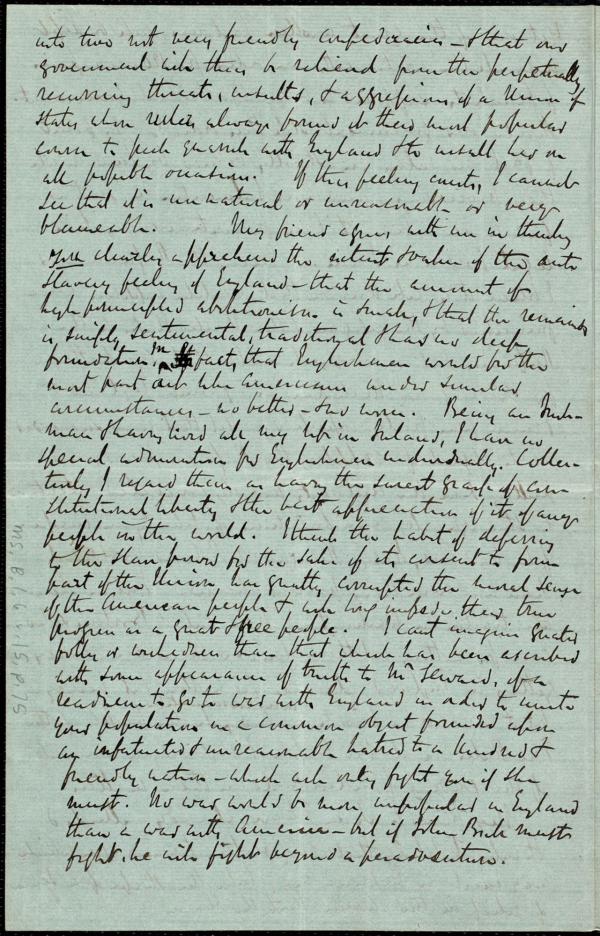 into two not very friendly confederacies – & that our
government will thus be relieved from the perpetually
recurring threats, insults, & aggressions, of a Union of
states whose rulers always found it their most popular
course to pick quarrels with England & to insult her on
all possible occasions. If this feeling exists, I cannot
see that it is unnatural or unreasonable or very
blameable. My friend agrees with me in thinking
you clearly apprehend the extent & value of the anti
slavery feeling of England – that the amount of
high principled abolitionism is small, & that the remainder
is simply sentimental, traditional & has no deep
foundation in fact, that Englishmen would for the
most part act like Americans under similar
circumstances – no better – & no worse. Being an Irish-
man & having lived all my life in Ireland, I have no
special admiration for Englishmen individually. Collec-
tively I regard them as having the surest grasp of con-
stitutional liberty & the best appreciation of it of any
people in the world. I think the habit of deferring
to the slave power for the sake of its consent to form
part of the Union has greatly corrupted the moral sense
of the American people & will long impede their true
progress as a great & free people. I can't imagine greater
folly or wickedness than that which has been ascribed
with some appearance of truth to Mr Seward, of a
readiness to go to war with England in order to unite
your population in a common object founded upon
an infatuated & unreasonable hatred to a kindred &
friendly nation – which will only fight you if she
must. No war would be more unpopular in England
than a war with America – but if John Bull must
fight, he will fight beyond a peradventure.